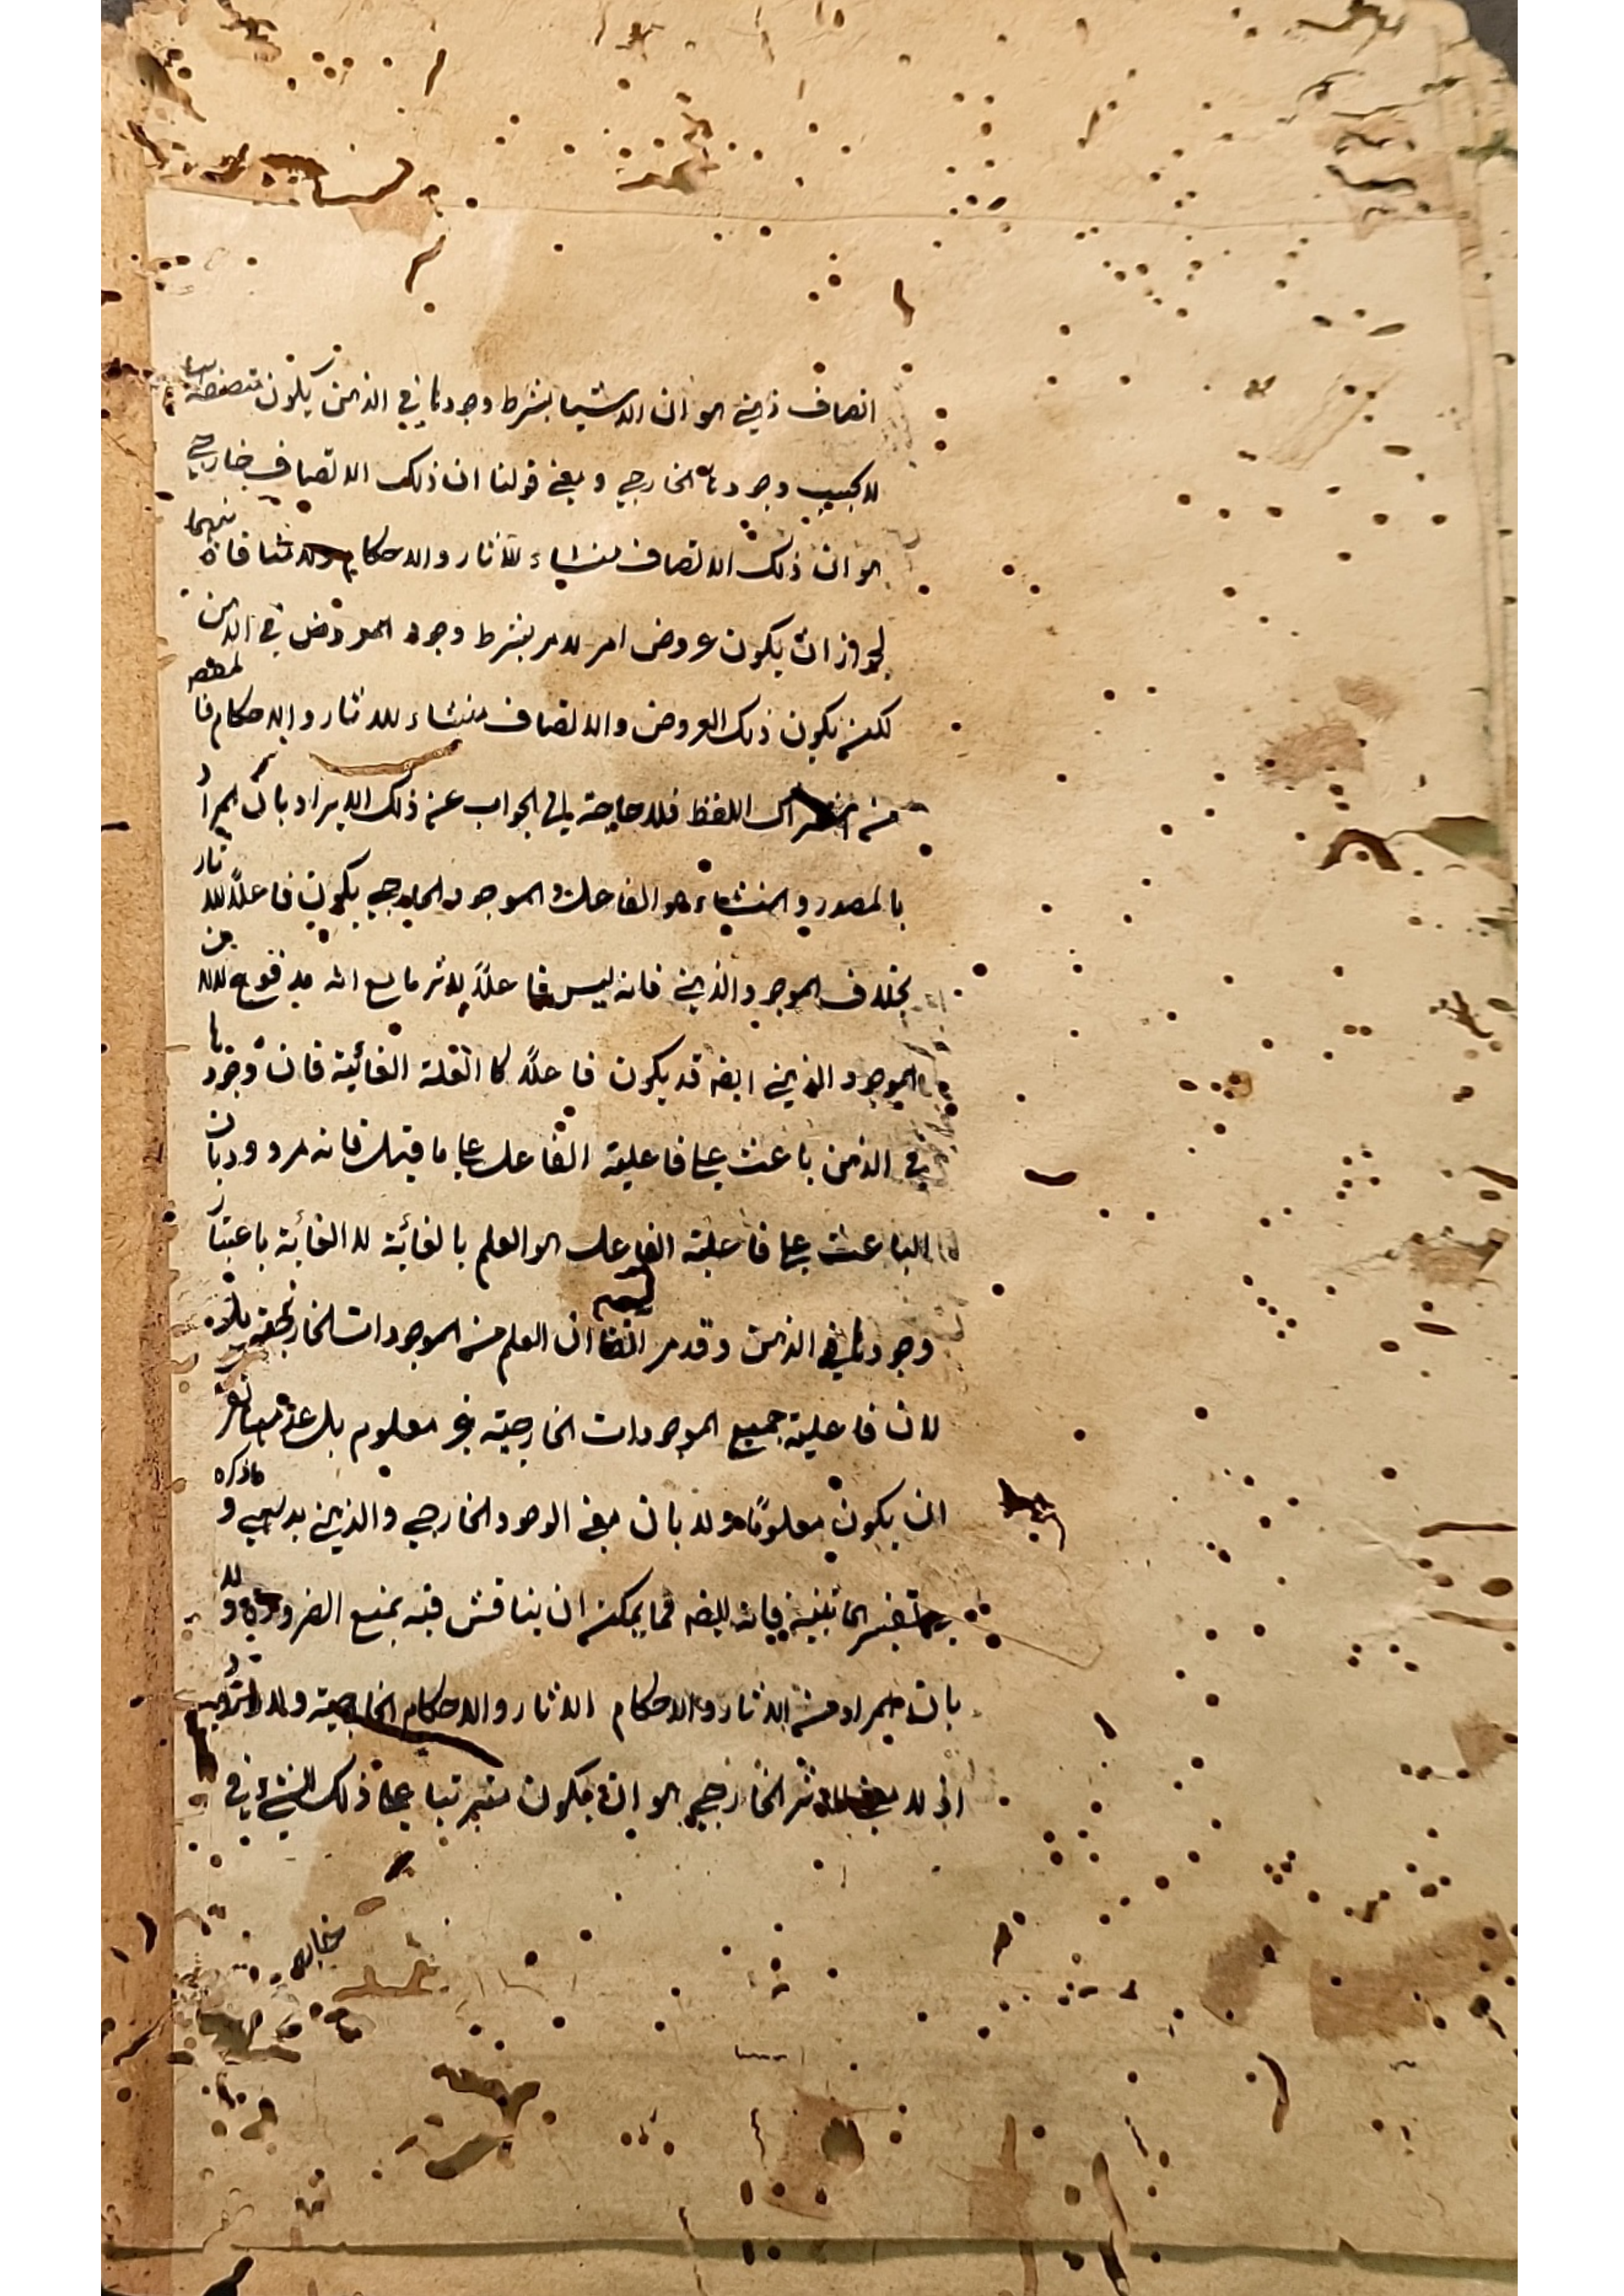 اتصاف ذهني هو ان الاشياء بشرط وجودها في الذهن يكون متصفة بها
لا بحسب وجودها الخارجي ومعنى قولنا ان ذلك الاتصاف خارجي
هو ان ذلك الاتصاف منشاء للآثار والاحكام ولا منافاة بينهما
لجواز ان يكون عروض امر لامر بشرط وجود المعروض في الذهن
لكنه يكون ذلك العروض والاتصاف منشاء للاثار والاحكام فا
من اللفظ فلا حاجة الى الجواب عن ذلك الايراد بان المراد
بالمصدر والمنشاء هو الفاعل والموجود الخارجي يكون فاعلاً للاثار
بخلاف الموجود الذهني فانه ليس فاعلاً لاثر ما مع انه مدفوع لان
الموجود الذهني ايضه قد يكون فاعلاً كالعلة الغائية فان وجودها
في الذهن باعث على فاعلية الفاعل على ما قيل فانه مردود بان
الباعث على فاعلية الفاعل هو العلم بالغاية لا الغاية باعتبار
وجودها في الذهن وقد مر ان العلم من الموجودات الخارجية بل
لان فاعلية جميع الموجودات الخارجية غير معلوم بل عدم
ان يكون معلومًا ولا بان معنى الوجود الخارجي والذهني بديهي وما ذكره
فانه ايضه مما يمكن ان يناقش فيه بمنع الضرورة ولا
بان المراد من الاثار والاحكام الاثار والاحكام الخارجية ولا
اذ لا معنى للاثر الخارجي الا ان يكون مترتبا على ذلك الشيء في
خارج